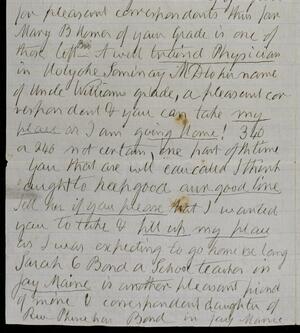 for pleasant correspondents thus far
Mary B Homer of your Grade is one of
those left A well trained Physician
in Holyoke Seminary M D to his name
of Uncle Williams grade, a pleasant cor-
respondent & you can take my
place as I am going home! 360
or 240 not certain, one part of the time
you that are well educated I think
ought to keep good
tell her if you please that I wanted
you to take & fill up my place
as I was expecting to go home be long
Sarah C Bond a School teacher in
Jay Maine is another pleasant friend
of mine & correspondent daughter of
Rev Phinehas Bond in Jay Maine